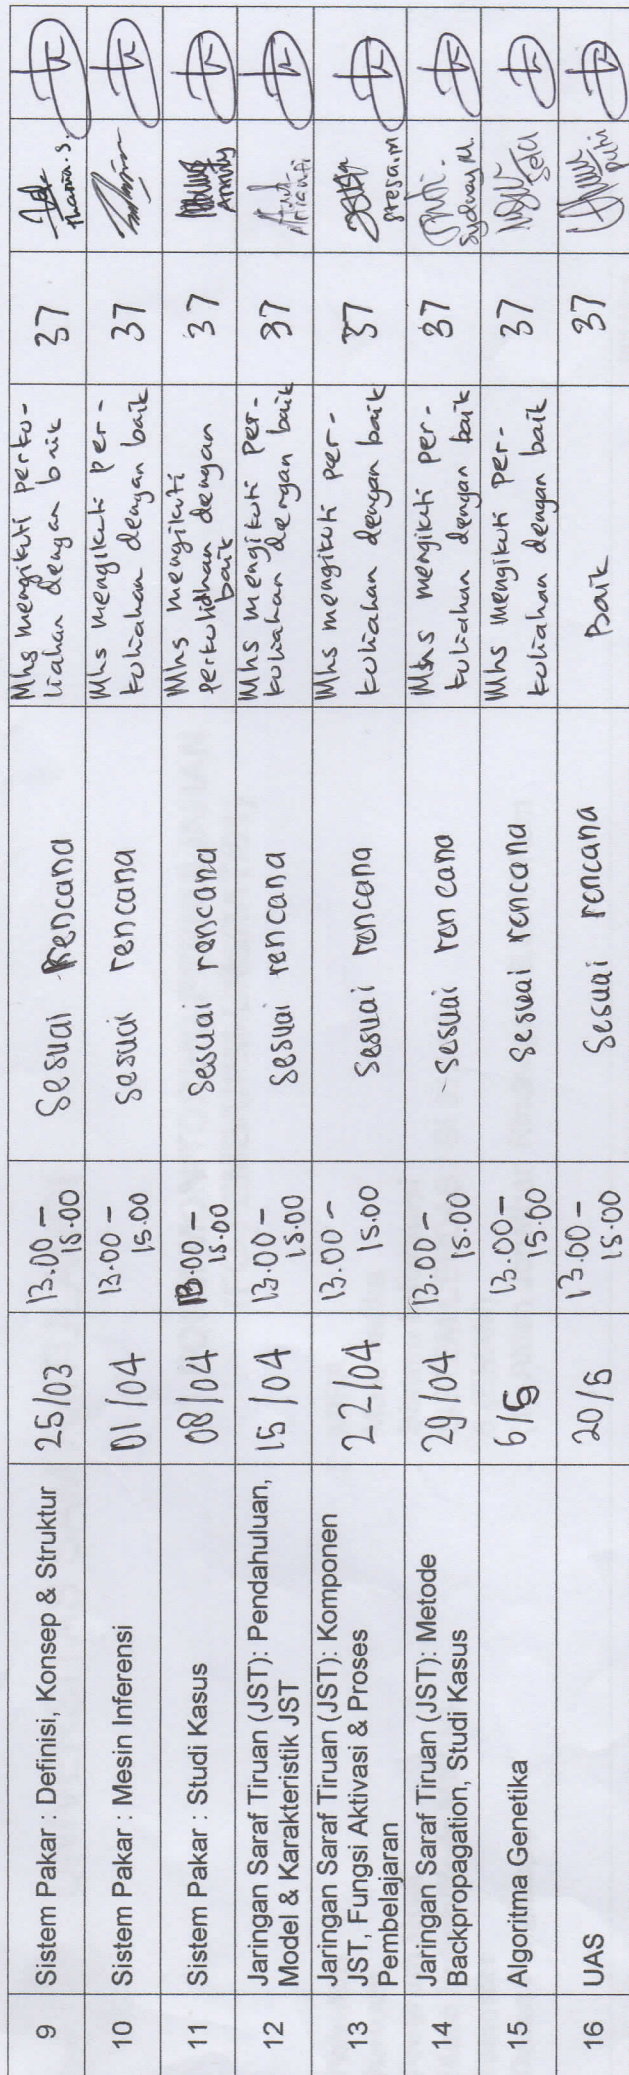 9 Sistem Pakar : Definisi, Konsep & Struktur 25/03 13.00 – 15.00 Sesuai Rencana Mhs mengikuti perku-
liahan dengan baik 37 Thania. S.
10 Sistem Pakar : Mesin Inferensi 01/04 13.00 – 15.00 sesuai rencana Mhs mengikuti per-
kuliahan dengan baik 37
11 Sistem Pakar : Studi Kasus 08/04 13.00 – 15.00 Sesuai rencana Mhs mengikuti
perkuliahan dengan
baik 37
12 Jaringan Saraf Tiruan (JST): Pendahuluan,
Model & Karakteristik JST 15/04 13.00 – 15.00 sesuai rencana Mhs mengikuti per-
kuliahan dengan baik 37
13 Jaringan Saraf Tiruan (JST): Komponen
JST, Fungsi Aktivasi & Proses
Pembelajaran 22/04 13.00 – 15.00 Sesuai rencana Mhs mengikuti per-
kuliahan dengan baik 37
14 Jaringan Saraf Tiruan (JST): Metode
Backpropagation, Studi Kasus 29/04 13.00 – 15.00 sesuai rencana Mhs mengikuti per-
kuliahan dengan baik 37 Sydney M.
15 Algoritma Genetika 6/5 13.00 – 15.00 sesuai rencana Mhs mengikuti per-
kuliahan dengan baik 37
16 UAS 20/5 13.00 – 15.00 Sesuai rencana Baik 37 Putri